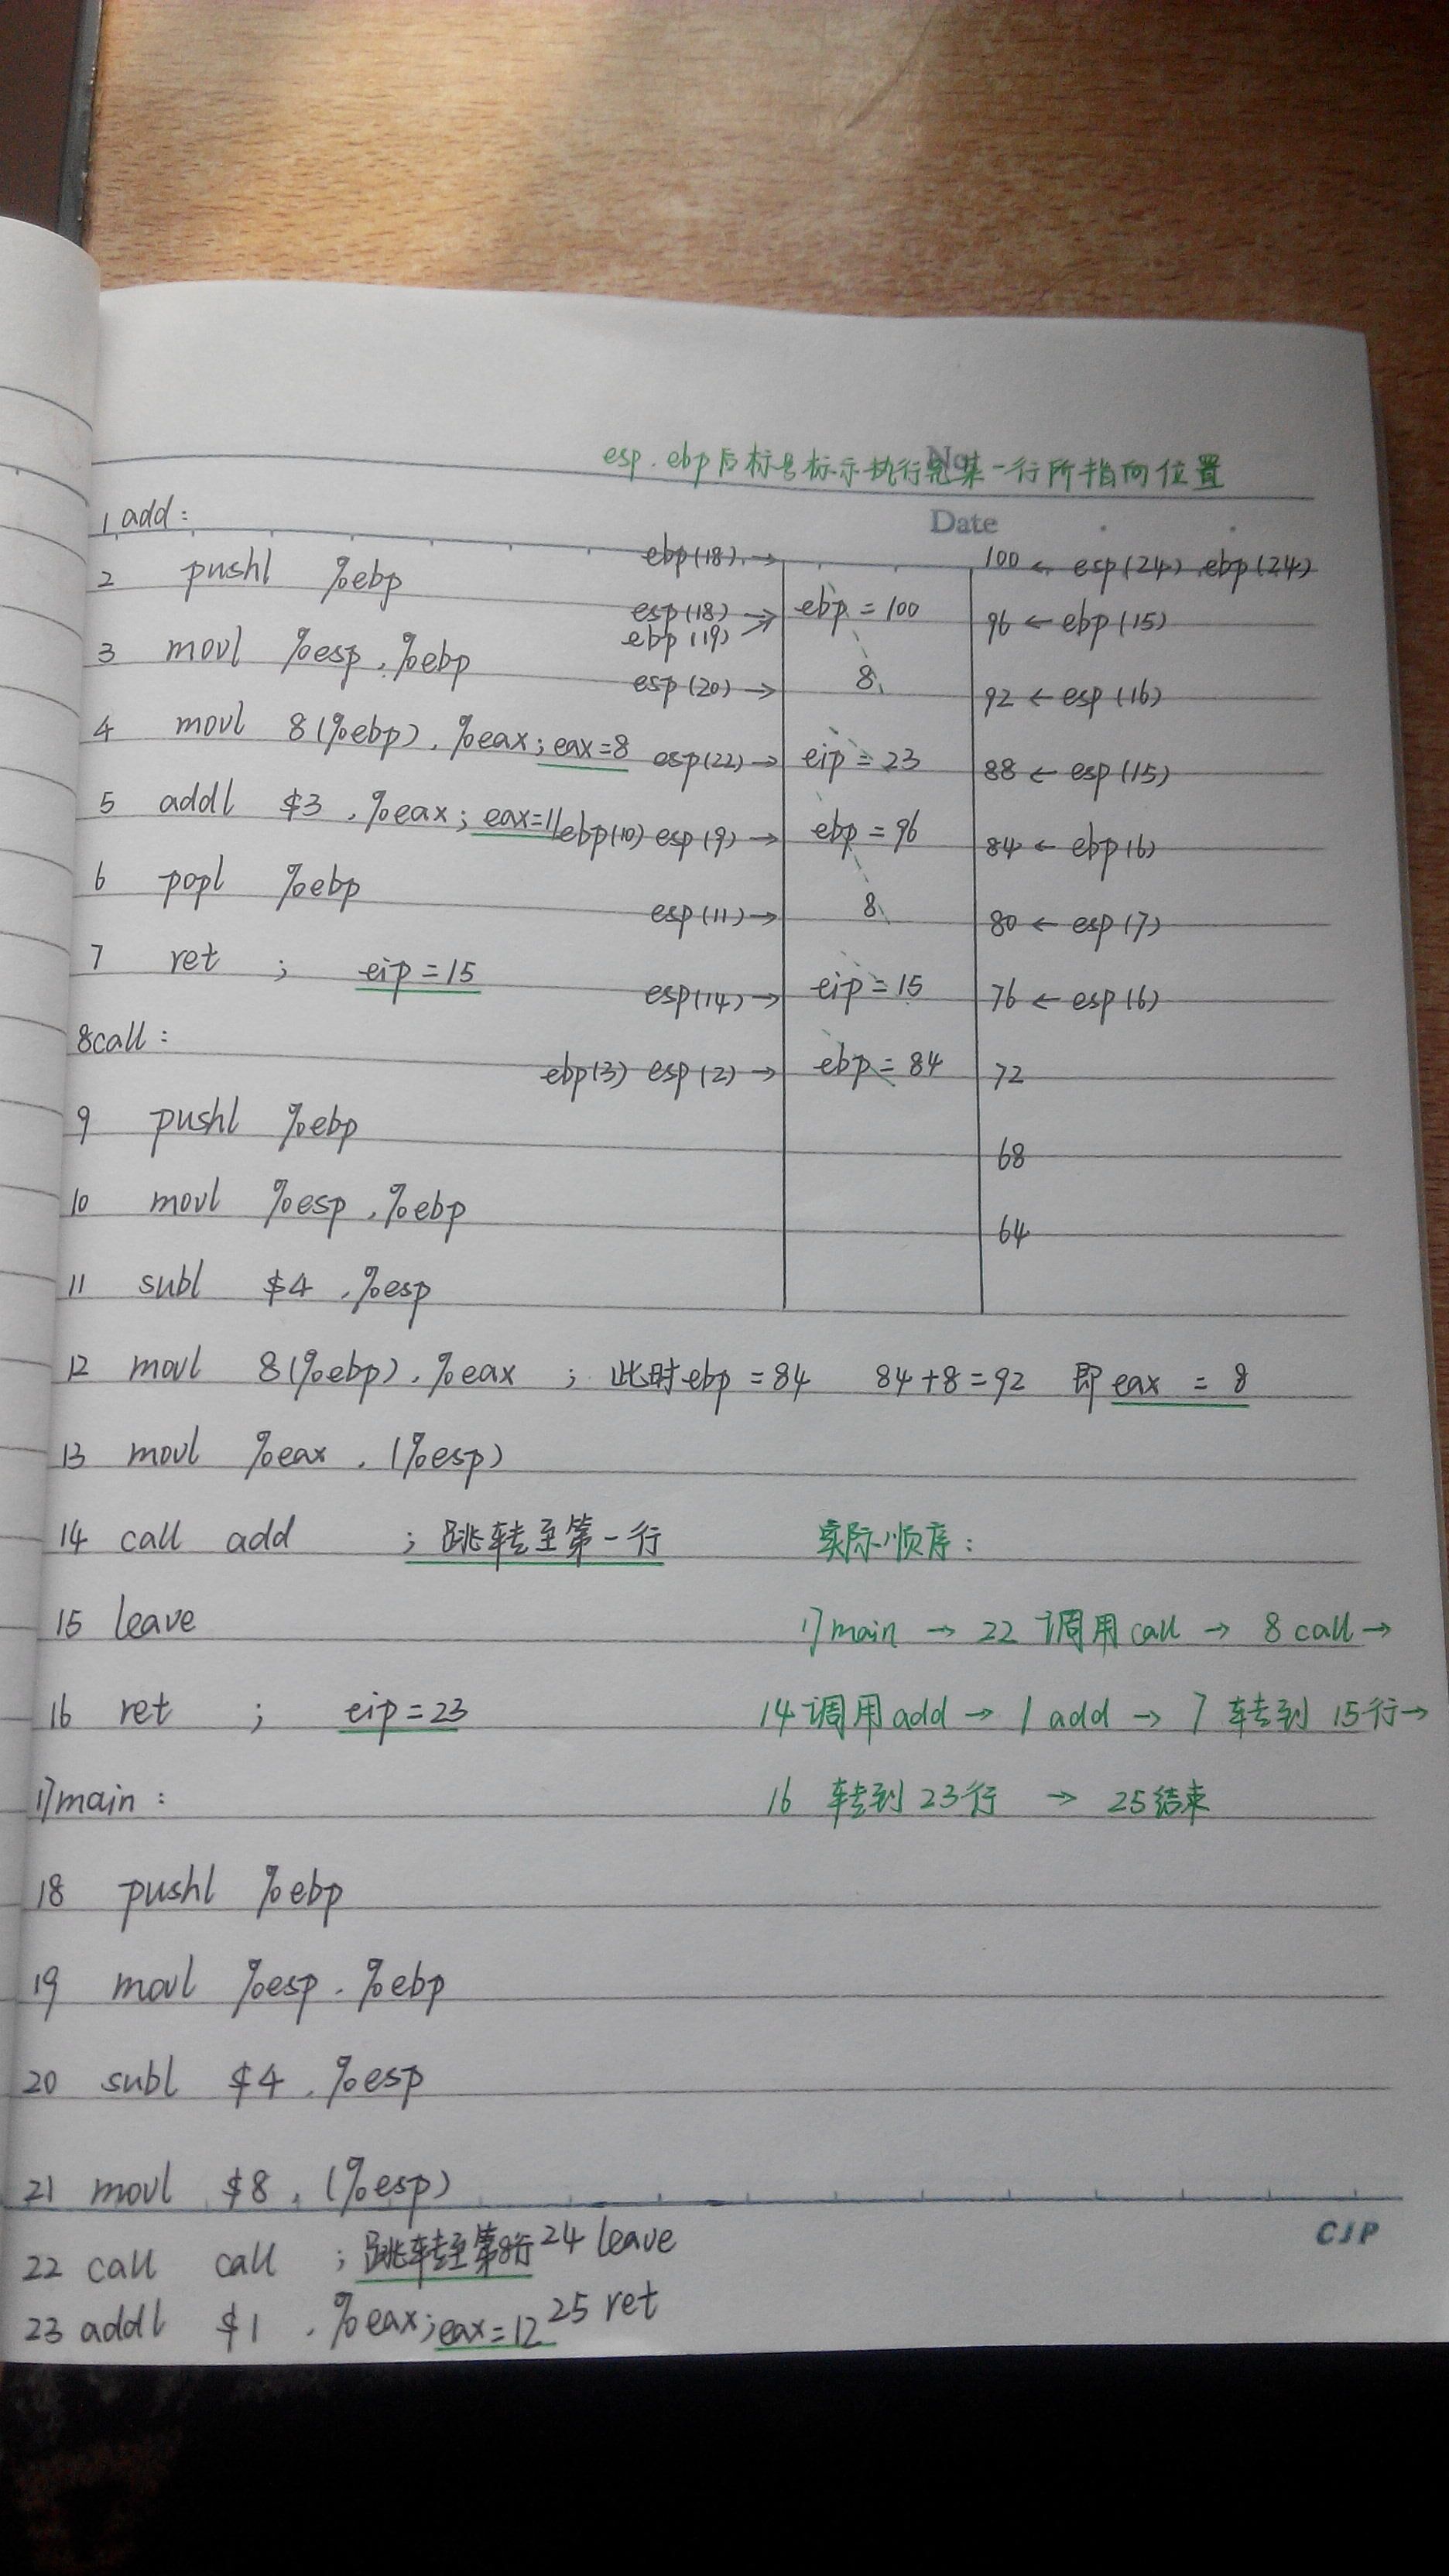 No.
esp. ebp后标号标示执行完某一行所指向位置
Date
1 add:
ebp(18) → 100 ← esp(24) ebp(24)
2 pushl %ebp
esp(18) → ebp = 100 96 ← ebp(15)
ebp(19) ↗
3 movl %esp, %ebp
esp(20) → 8 92 ← esp(16)
4 movl 8(%ebp), %eax; eax=8 esp(22) → eip = 23 88 ← esp(15)
5 addl $3, %eax; eax=11 ebp(10) esp(9) → ebp = 96 84 ← ebp(6)
6 popl %ebp
esp(11) → 8 80 ← esp(7)
7 ret ; eip = 15 esp(14) → eip = 15 76 ← esp(6)
8 call:
ebp(3) esp(2) → ebp = 84 72
9 pushl %ebp
68
10 movl %esp, %ebp
64
11 subl $4, %esp
12 movl 8(%ebp), %eax ; 此时ebp = 84 84+8=92 即 eax = 8
13 movl %eax, (%esp)
14 call add ; 跳转至第一行 实际顺序:
15 leave 17 main → 22 调用 call → 8 call →
16 ret ; eip = 23 14 调用 add → 1 add → 7 转到 15行→
17 main: 16 转到 23行 → 25结束
18 pushl %ebp
19 movl %esp, %ebp
20 subl $4, %esp
21 movl $8, (%esp)
22 call call ; 跳转至第8行 24 leave
23 addl $1, %eax; eax=12 25 ret
CJP